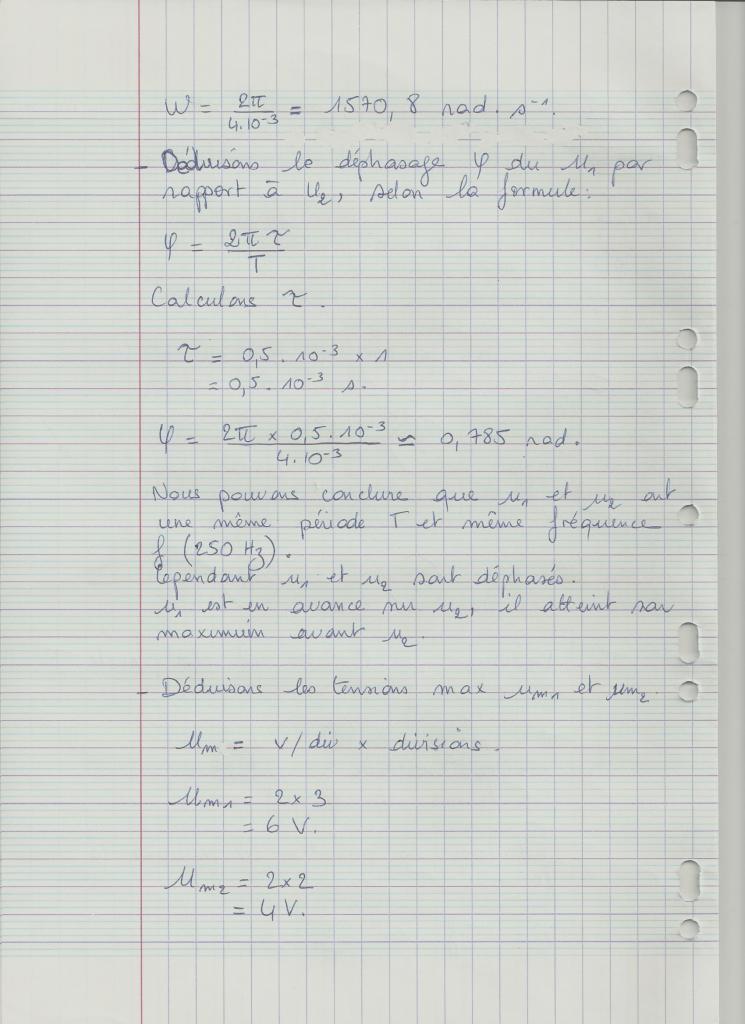 W = 2π / 4.10⁻³ = 1570,8 rad. s⁻¹.
- Déduisons le déphasage φ du u₁ par
rapport à u₂, selon la formule:
φ = 2π τ / T
Calculons τ.
τ = 0,5 . 10⁻³ × 1
= 0,5 . 10⁻³ s.
φ = 2π × 0,5 . 10⁻³ / 4.10⁻³ ≃ 0,785 rad.
Nous pouvons conclure que u₁ et u₂ ont
une même période T et même fréquence
f (250 Hz).
Cependant u₁ et u₂ sont déphasés.
u₁ est en avance sur u₂, il atteint son
maximum avant u₂.
- Déduisons les tensions max um₁ et um₂.
Um = V/div × divisions.
Um₁ = 2 × 3
= 6 V.
Um₂ = 2×2
= 4V.